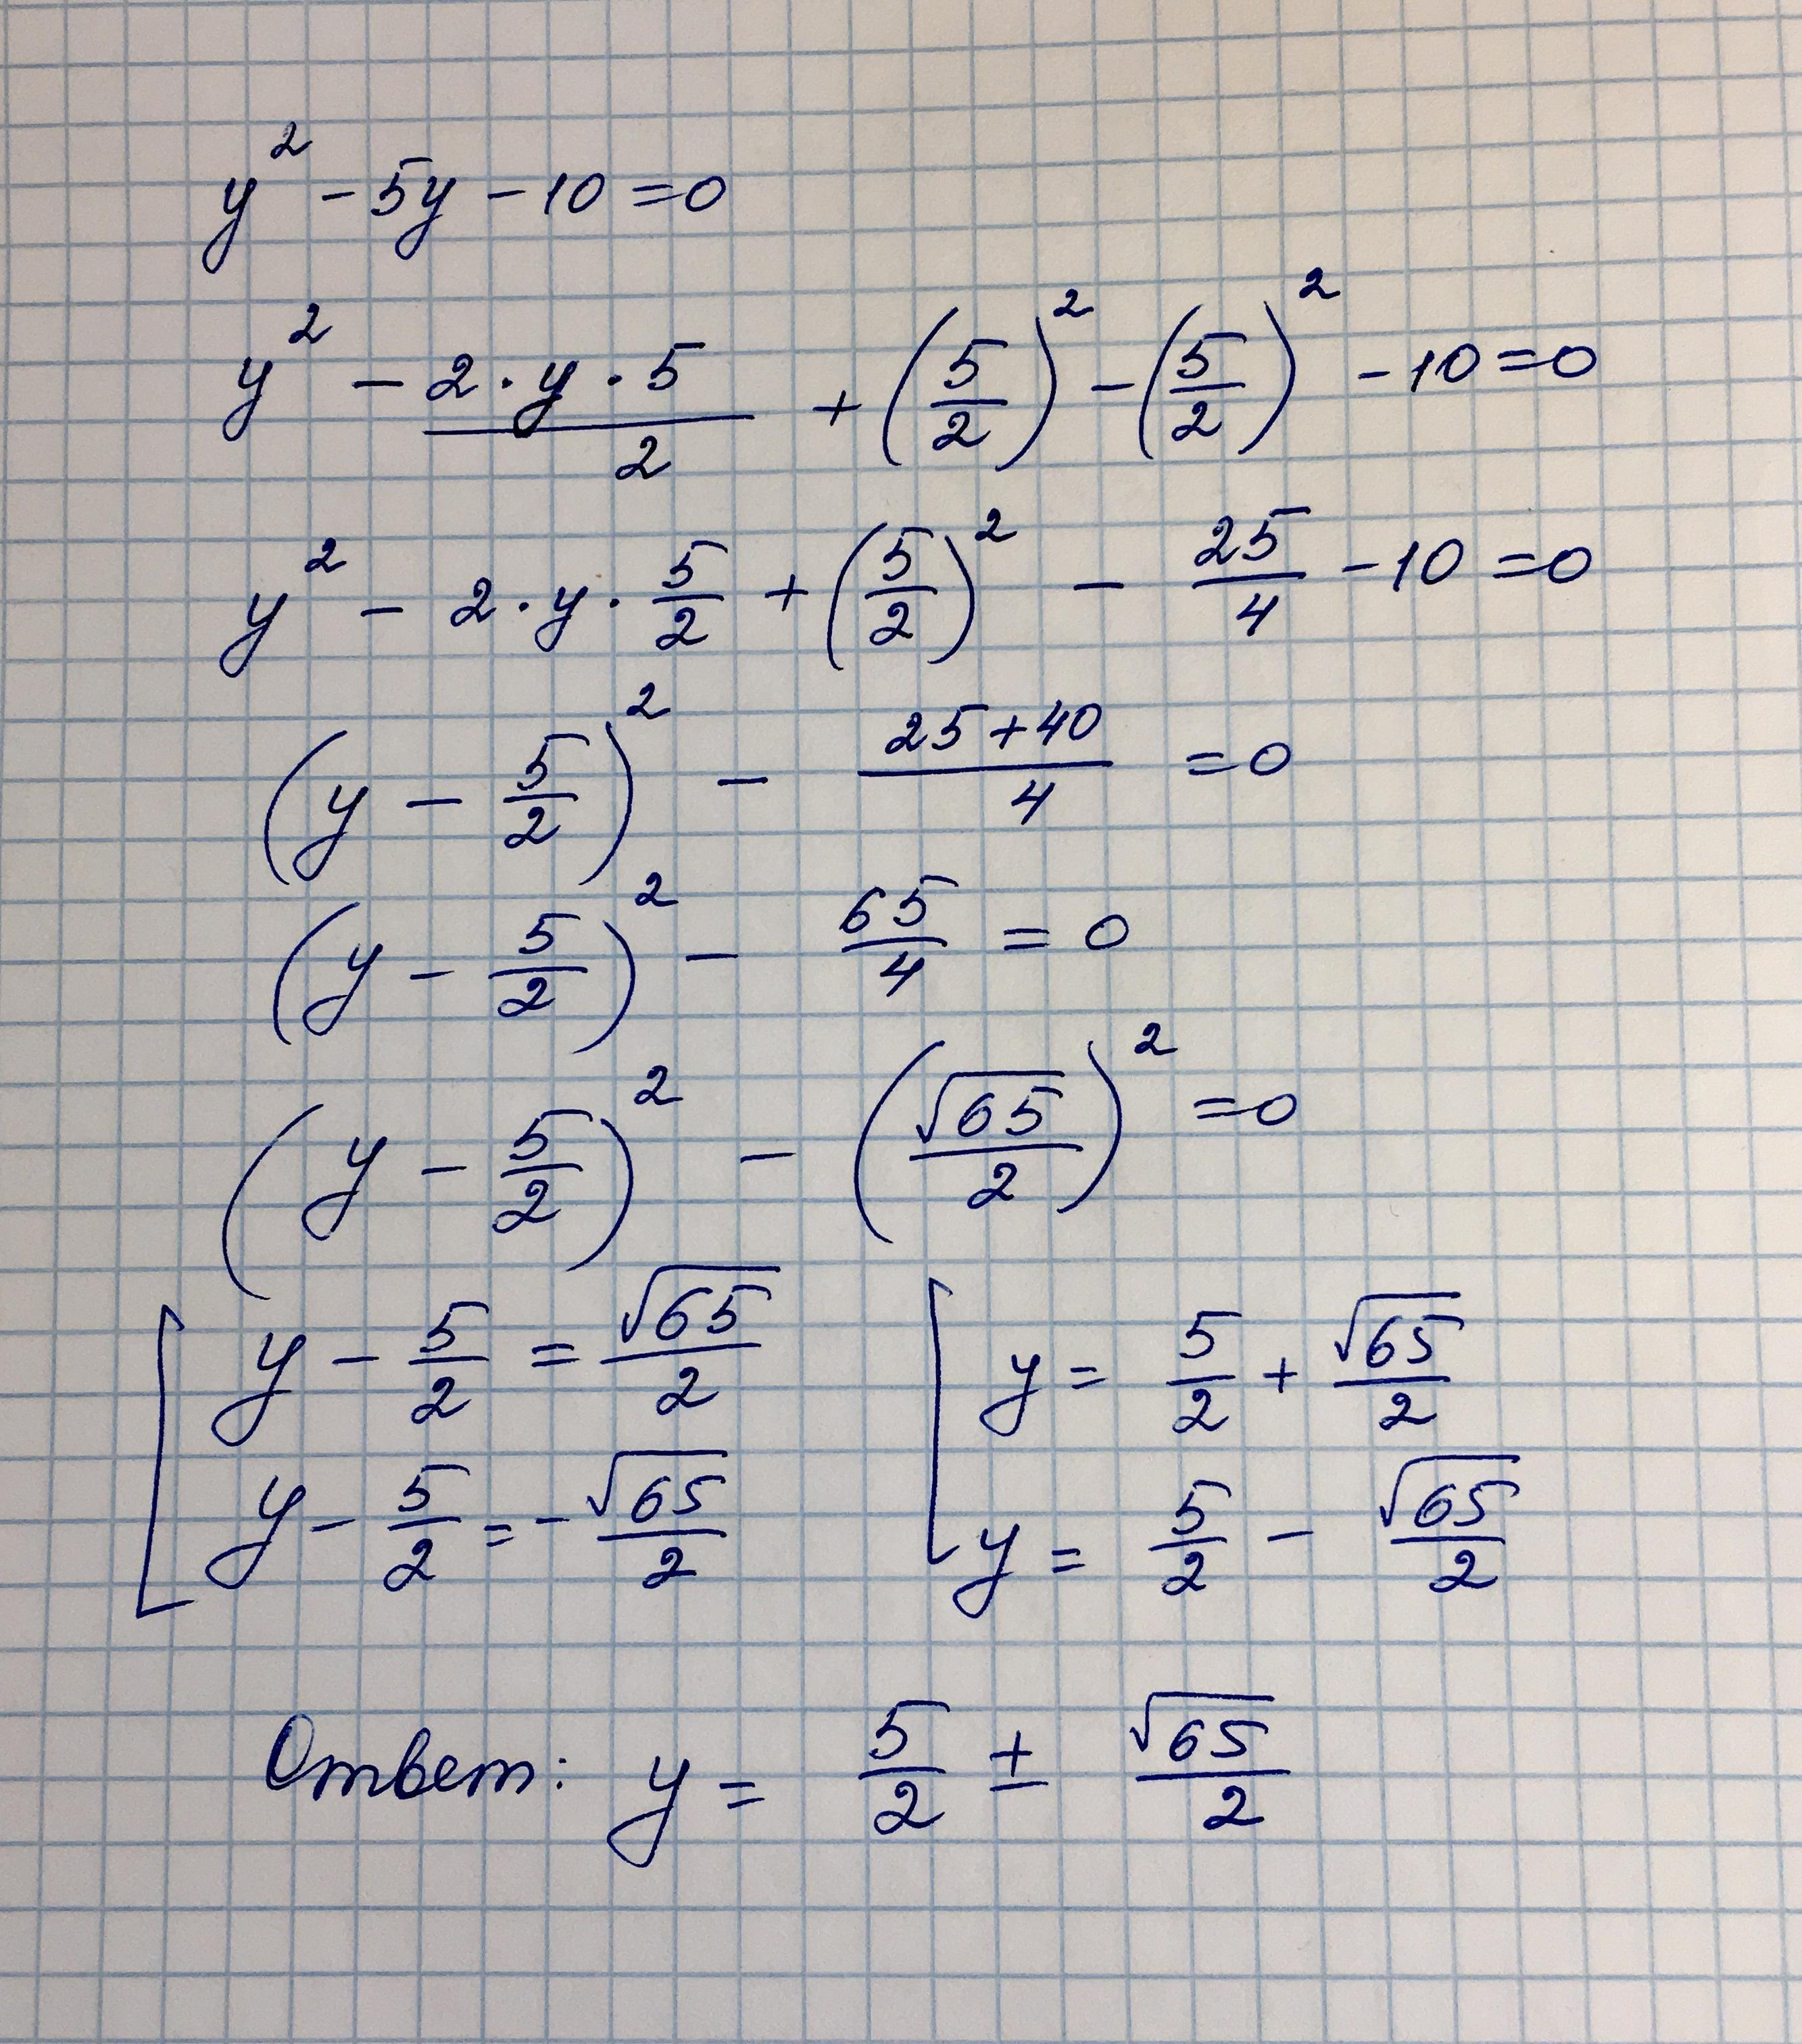 y² - 5y - 10 = 0
y² - (2·y·5)/2 + (5/2)² - (5/2)² - 10 = 0
y² - 2·y·5/2 + (5/2)² - 25/4 - 10 = 0
(y - 5/2)² - (25+40)/4 = 0
(y - 5/2)² - 65/4 = 0
(y - 5/2)² - (√65/2)² = 0
[ y - 5/2 = √65/2 [ y = 5/2 + √65/2
y - 5/2 = -√65/2 y = 5/2 - √65/2
Ответ: y = 5/2 ± √65/2